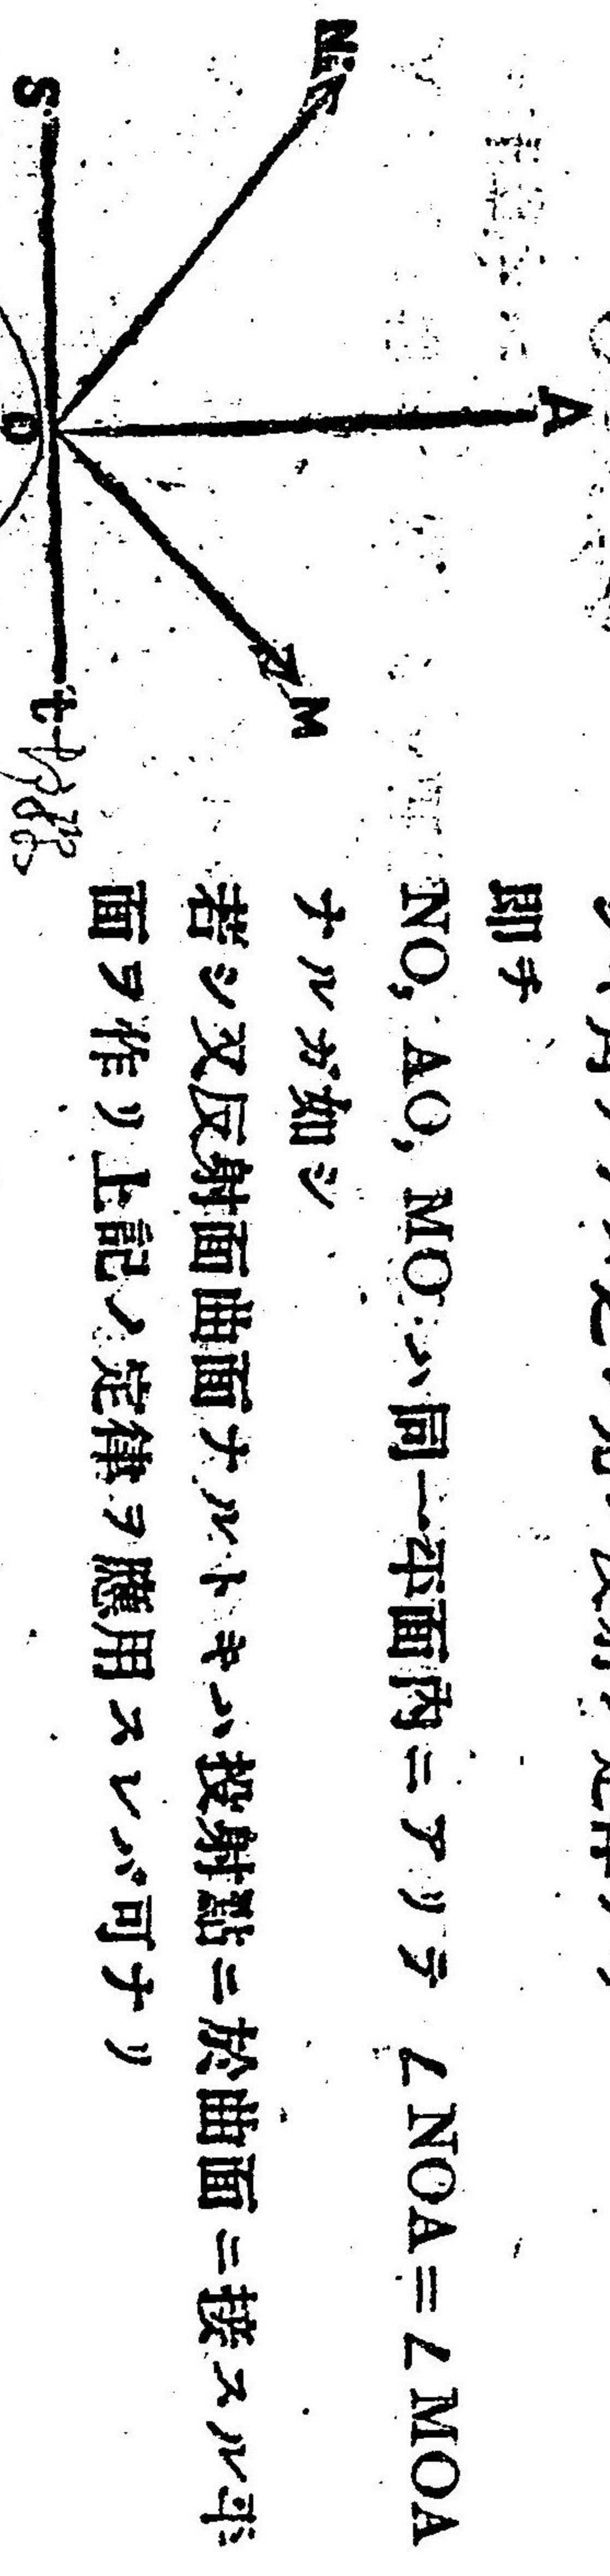 即チ
NO, AO, MO ハ同一平面内ニアリテ ∠NOA=∠MOA
ナルガ如シ
若シ又反射面曲面ナルトキハ投射點ニ於曲面ニ接スル平
面ヲ作リ上記ノ定律ヲ應用スレバ可ナリ
N
A
M
S
O
t